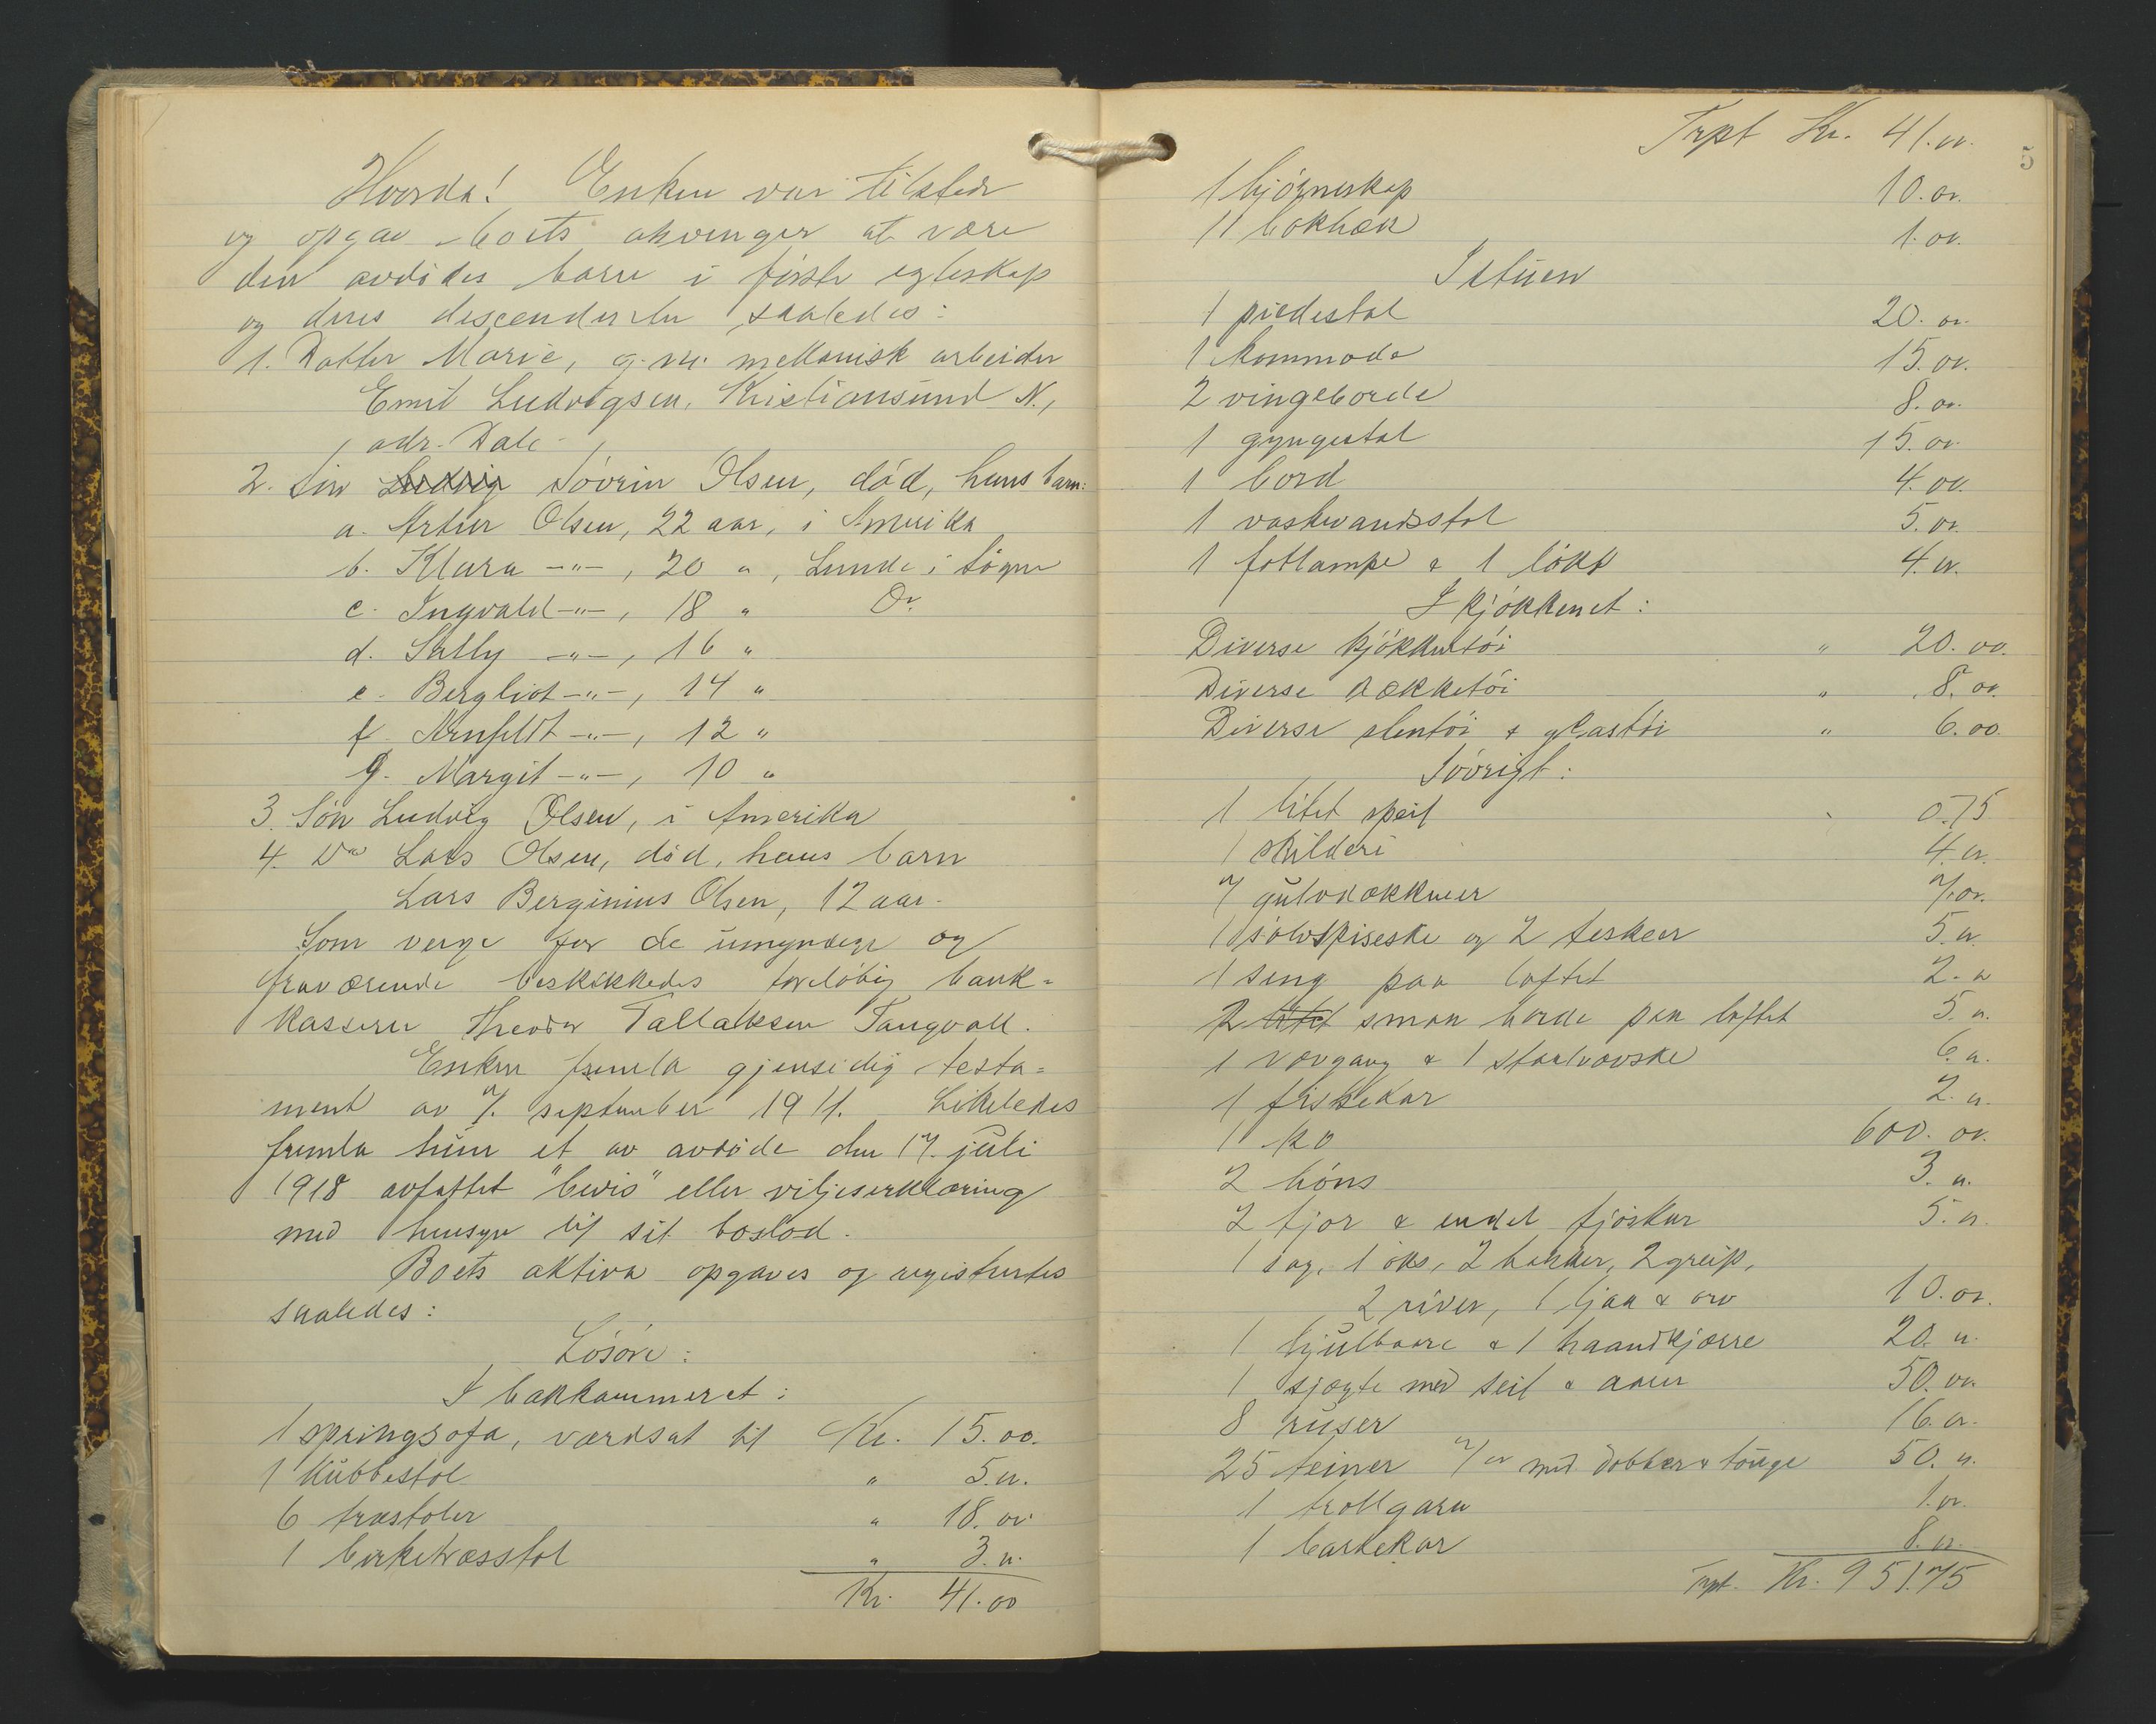 Hvorda! Enken var tilstede
og opgav boets arvinger at være
den avdödes barn i förste egteskap
og deres descendenter saaledes:
1. Datter Marie, g. m. mekanisk arbeider
Emil Ludvigsen, Kristiansund N.,
adr. Dale
2. Sön Ludvig Sövrin Olsen, död, hans barn:
a. Artur Olsen, 22 aar, i Amerika
b. Klara -"-, 20 ", Lunde i Sögne
c. Ingvald -"-, 18 " Do.
d. Sally -"-, 16 "
e. Bergliot -"-, 14 "
f. Arnfeldt -"-, 12 "
g. Margit -"-, 10 "
3. Sön Ludvig Olsen, i Amerika
4. Do Lars Olsen, död, hans barn
Lars Berginius Olsen, 12 aar.
Som verge for de umyndige og
fraværende beskikkedes foreløbig bank=
kasserer Theodor Tallaksen Tangvall.
Enken fremla gjensidig testa=
ment av 7. september 1911. Likeledes
fremla hun et av avdöde den 17. juli
1918 avfattet "bevis" eller viljeserklæring
med hensyn til sit boslod.
Boets aktiva opgaves og registrertes
saaledes:
Lösöre:
I bakkammeret:
1 springsofa, værdsat til Kr. 15.00.
1 kubbestol " 5.00.
6 træstoler " 18.00
1 birketræsstol " 3.00.
Kr. 41.00
5
Trpt Kr. 41.00.
1 hjörneskap 10.00.
1 bokhæk 1.00.
I stuen
1 piedestal 20.00.
1 kommode 15.00.
2 vingeborde 8.00.
1 gyngestol 15.00
1 bord 4.00.
1 vaskevandsstol 5.00.
1 fotlampe & 1 lökt 4.00.
I kjökkenet:
Diverse kjökkentöi " 20.00.
Diverse dækketöi " 8.00.
Diverse stentöi & glastöi " 6.00.
Iövrigt:
1 litet speil 0.75
1 skilderi 4.00.
7 gulvdækkener 7.00.
1 sölvspiseske og 2 teskeer 5.00.
1 seng paa loftet 2.00
2 litet smaa borde paa loftet 5.00.
1 vævgang & 1 staalvævske 6.00.
1 fiskekar 2.00.
1 ko 600.00.
2 höns 3.00.
2 fjor & endel fjöskar 5.00.
1 sag, 1 öks, 2 hakker, 2 greip,
2 river, 1 ljaa & orv 10.00.
1 hjulbaare & 1 haandkjærre 20.00
1 sjægte med seil & aarer 50.00.
8 ruser 16.00.
25 teiner med dobber & tauge 50.00.
1 trollgarn 1.00.
1 barkekar 8.00.
Trpt. Kr. 951.75